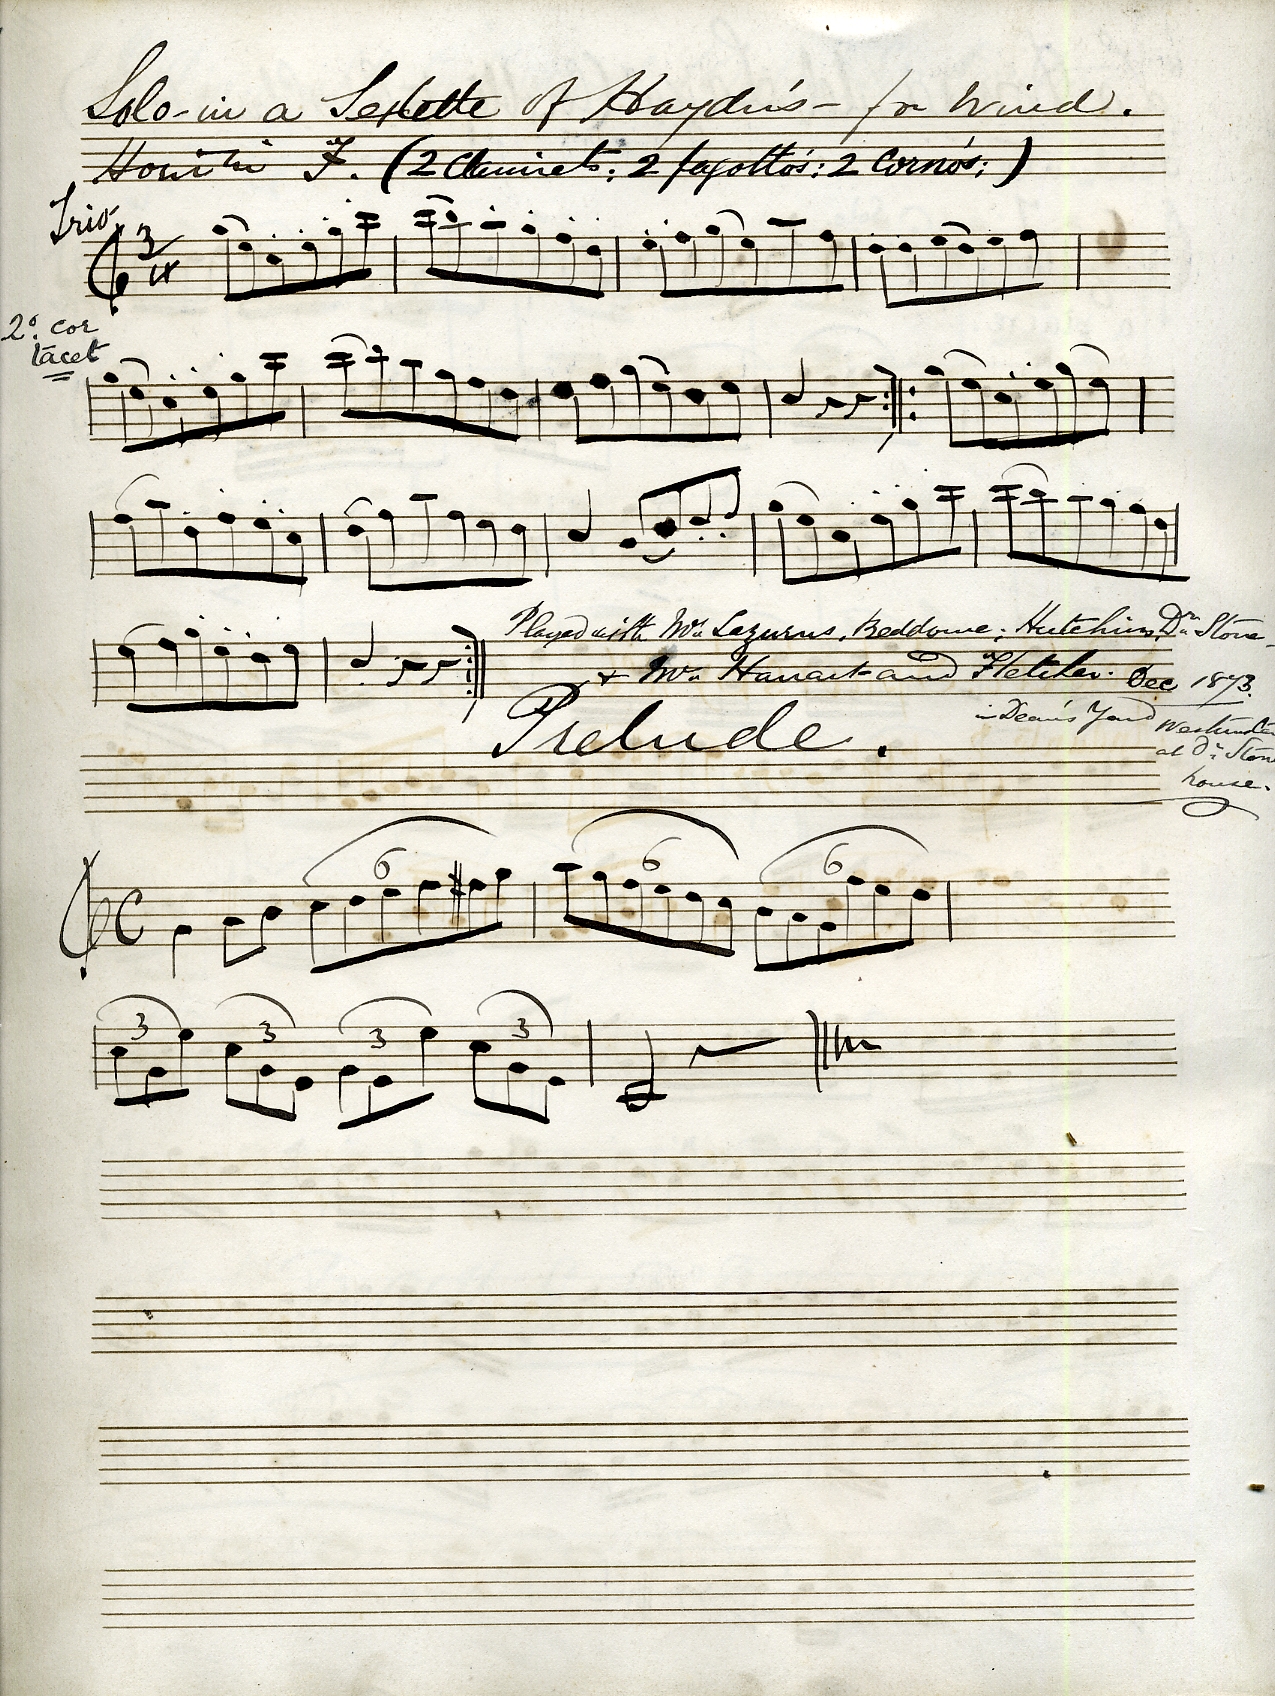 Solo - in a Sextette of Haydn's - for Wind.
Horn in F. (2 Clarinets; 2 fagotto's; 2 Corno's;)
Trio
3
2º. Cor
tacet
Played with Mr. Lazarus, Beddome; Hutchins, Dr. Stone -
& Mr. Hanart and Fletcher. Dec 1873.
in Dean's Yard Westminster
at Dr. Stone
house.
Prelude.
C
6 6 6
3 3 3 3